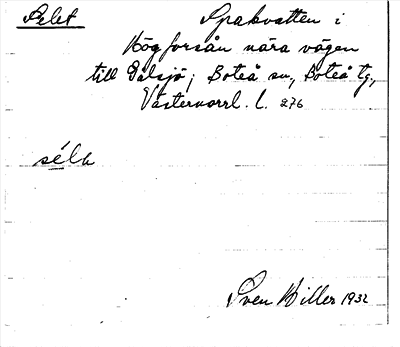 Selet Spakvatten i
Högforsån nära vägen
till Gålsjö; Boteå sn., Boteå tg.,
Västernorrl. l. 276
séla
Sven Hiller 1932